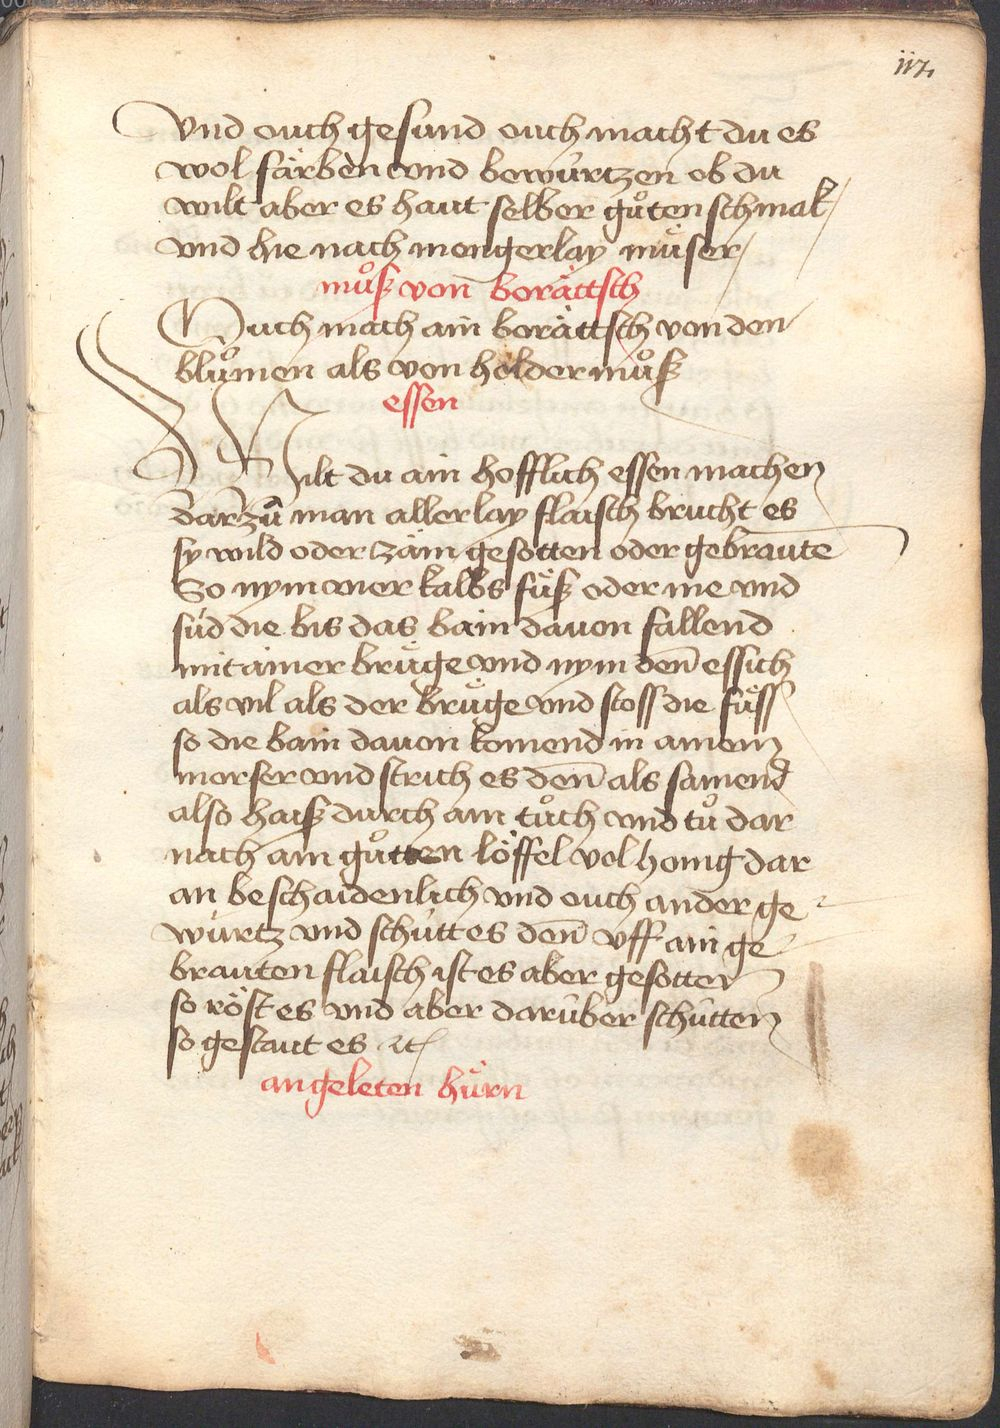 117.
Vnd ouch gesund ouch macht du es
wol färben vnd bewúrtzen ob du
wilt aber es haut selber gůten schmak /
vnd hie nach mengerlay müser /
můß von borättsch
Ouch mach ain borättsch von den
blůmen als von holder můß
essen
Wilt du ain hofflich essen machen
darzů man allerlay flaisch brucht es
sy wild oder zäm gesotten oder gebraute
So nym vier kalbs füß oder me vnd
súd die bis das bain dauon fallend
mit ainer brüge vnd nym den̄ essich
als vil als der brüge vnd stoss die füss
so die bain dauon komend in ainem
morser vnd strich es den̄ als samend
also haiß durch ain tůch vnd tů dar
nach ain gůtten löffel vol honig dar
an beschaidenlich vnd ouch ander ge
würtz vnd schútt es den̄ vff ain ge
brauten flaisch ist es aber gesotten
so röst es vnd aber darúber schútten
so gestaut es ⁊c
angeleten hürn